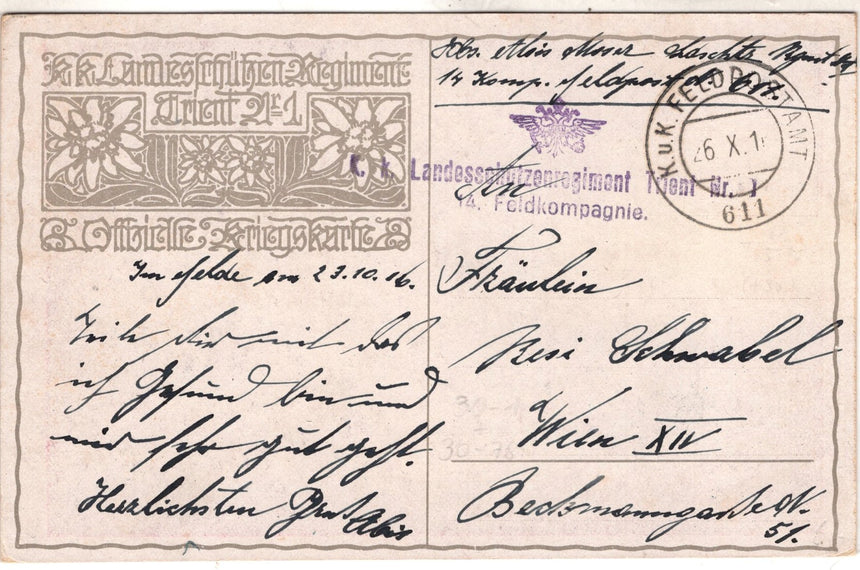 K.k. Landesschützen-Regiment
Trient Nr. 1
Offizielle Kriegskarte
Abs. Alois Moser
14 Komp. Feldpost 611.
K.u.K. FELDPOSTAMT
26 X. 1
611
K. k. Landesschützenregiment Trient Nr. I
14. Feldkompagnie.
An
Fräulein
Resi Schwabel
Wien XII
Beckmanngasse N.
51.
Im Felde am 23.10.16.
Teile dir mit das
ich Gesund bin und
mir sehr gut geht.
Herzlichsten Gruß
Alois